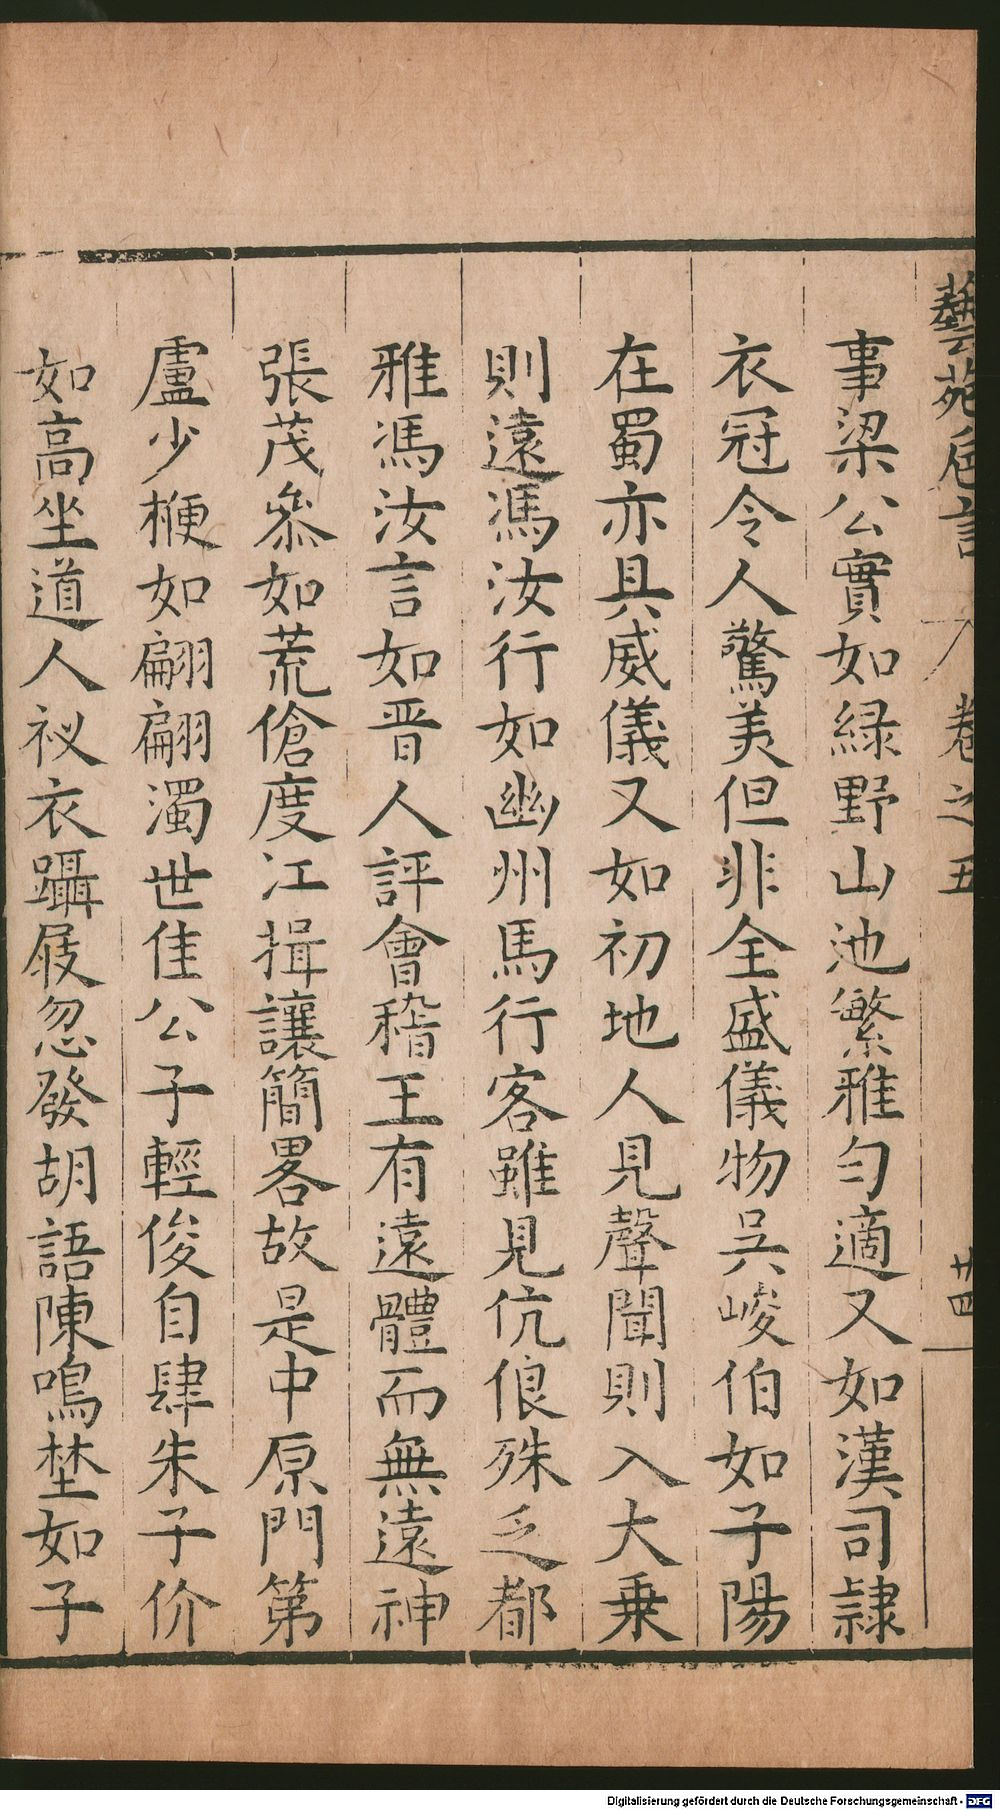 藝苑卮言 卷之五 廿四
事梁公實如綠野山池繁雅勻適又如漢司隷
衣冠令人驚美但非全盛儀物吳峻伯如子陽
在蜀亦具威儀又如初地人見聲聞則入大乗
則遠馮汝行如幽州馬行客雖見伉俍殊乏都
雅馮汝言如晋人評會稽王有遠體而無遠神
張茂叅如荒傖度江揖讓簡畧故是中原門第
盧少楩如翩翩濁世佳公子輕俊自肆朱子价
如高坐道人衩衣躡屐忽發胡語陳鳴埜如子
Digitalisierung gefördert durch die Deutsche Forschungsgemeinschaft - DFG